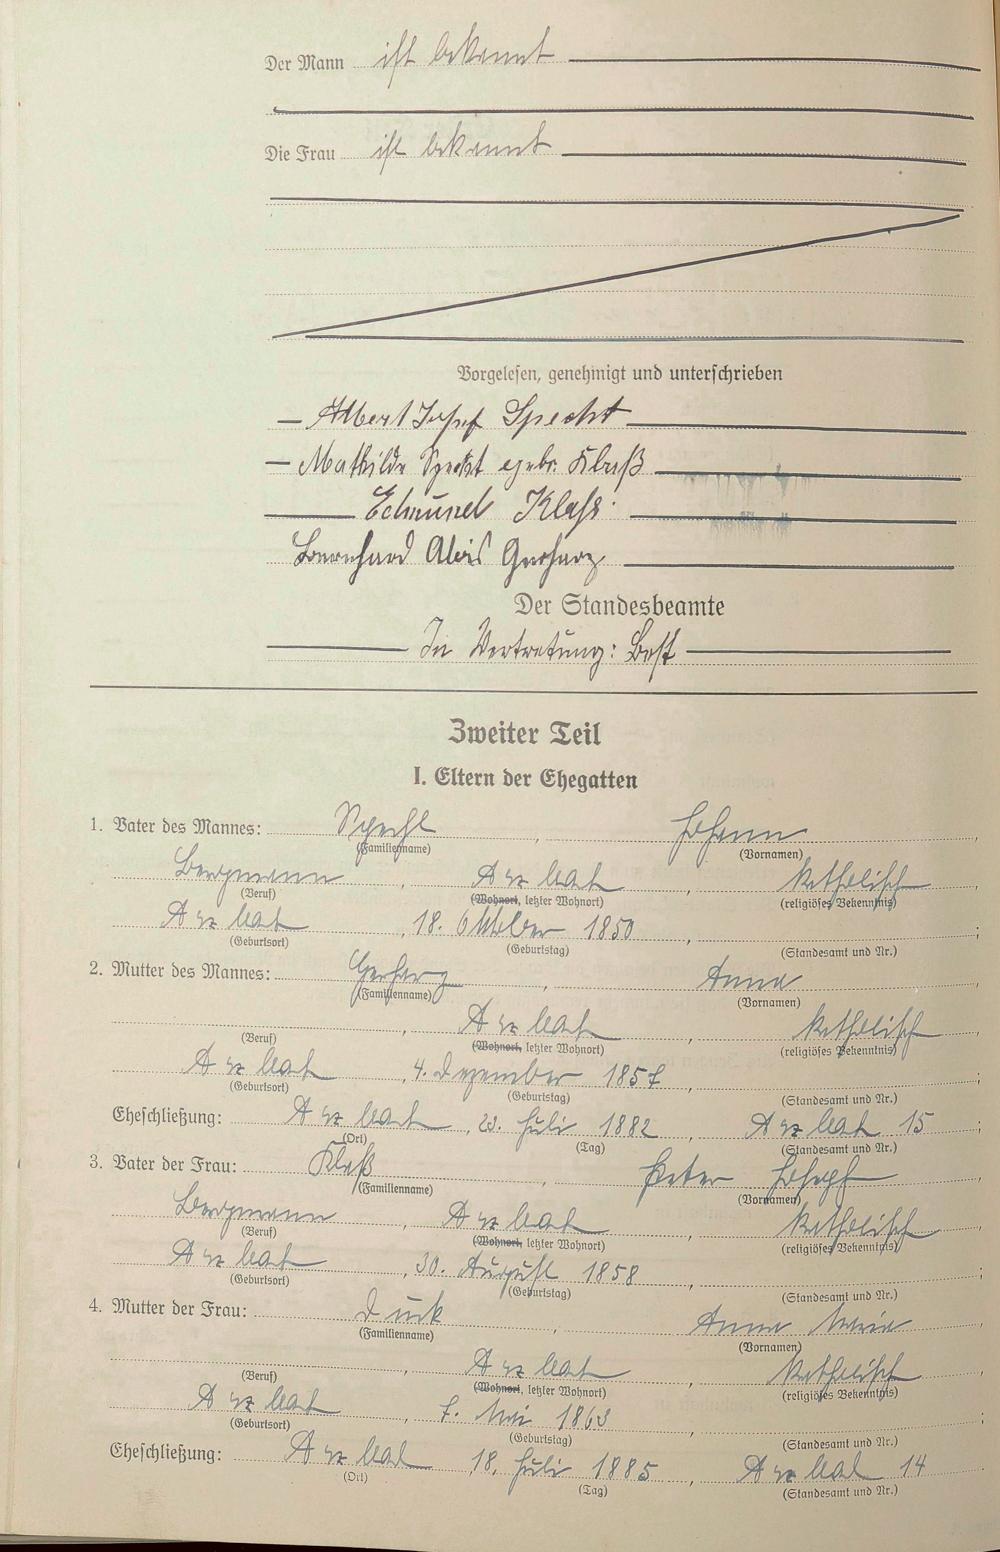 Der Mann ist bekannt
Die Frau ist bekannt
Vorgelesen, genehmigt und unterschrieben
Albert Josef Specht
Mathilde Specht gebr. Klaß
Edmund Klaß
Bernhard Alois Gerharz
Der Standesbeamte
In Vertretung: Best
Zweiter Teil
I. Eltern der Ehegatten
1. Vater des Mannes: Specht, Johann,
(Familienname) (Vornamen)
Bergmann, Arzbach, katholisch
(Beruf) (Wohnort, letzter Wohnort) (religiöses Bekenntnis)
Arzbach, 18. Oktober 1850, ;
(Geburtsort) (Geburtstag) (Standesamt und Nr.)
2. Mutter des Mannes: Gerharz, Anna,
(Familienname) (Vornamen)
, Arzbach, katholisch
(Beruf) (Wohnort, letzter Wohnort) (religiöses Bekenntnis)
Arzbach, 4. Dezember 1857, ;
(Geburtsort) (Geburtstag) (Standesamt und Nr.)
Eheschließung: Arzbach, 23. Juli 1882, Arzbach 15;
(Ort) (Tag) (Standesamt und Nr.)
3. Vater der Frau: Klaß, Peter Josef,
(Familienname) (Vornamen)
Bergmann, Arzbach, katholisch,
(Beruf) (Wohnort, letzter Wohnort) (religiöses Bekenntnis)
Arzbach, 30. August 1858, ;
(Geburtsort) (Geburtstag) (Standesamt und Nr.)
4. Mutter der Frau: Anna Maria,
(Familienname) (Vornamen)
, Arzbach, katholisch,
(Beruf) (Wohnort, letzter Wohnort) (religiöses Bekenntnis)
Arzbach, 7. Mai 1863, ;
(Geburtsort) (Geburtstag) (Standesamt und Nr.)
Eheschließung: Arzbach, 18. Juli 1885, Arzbach 14
(Ort) (Tag) (Standesamt und Nr.)